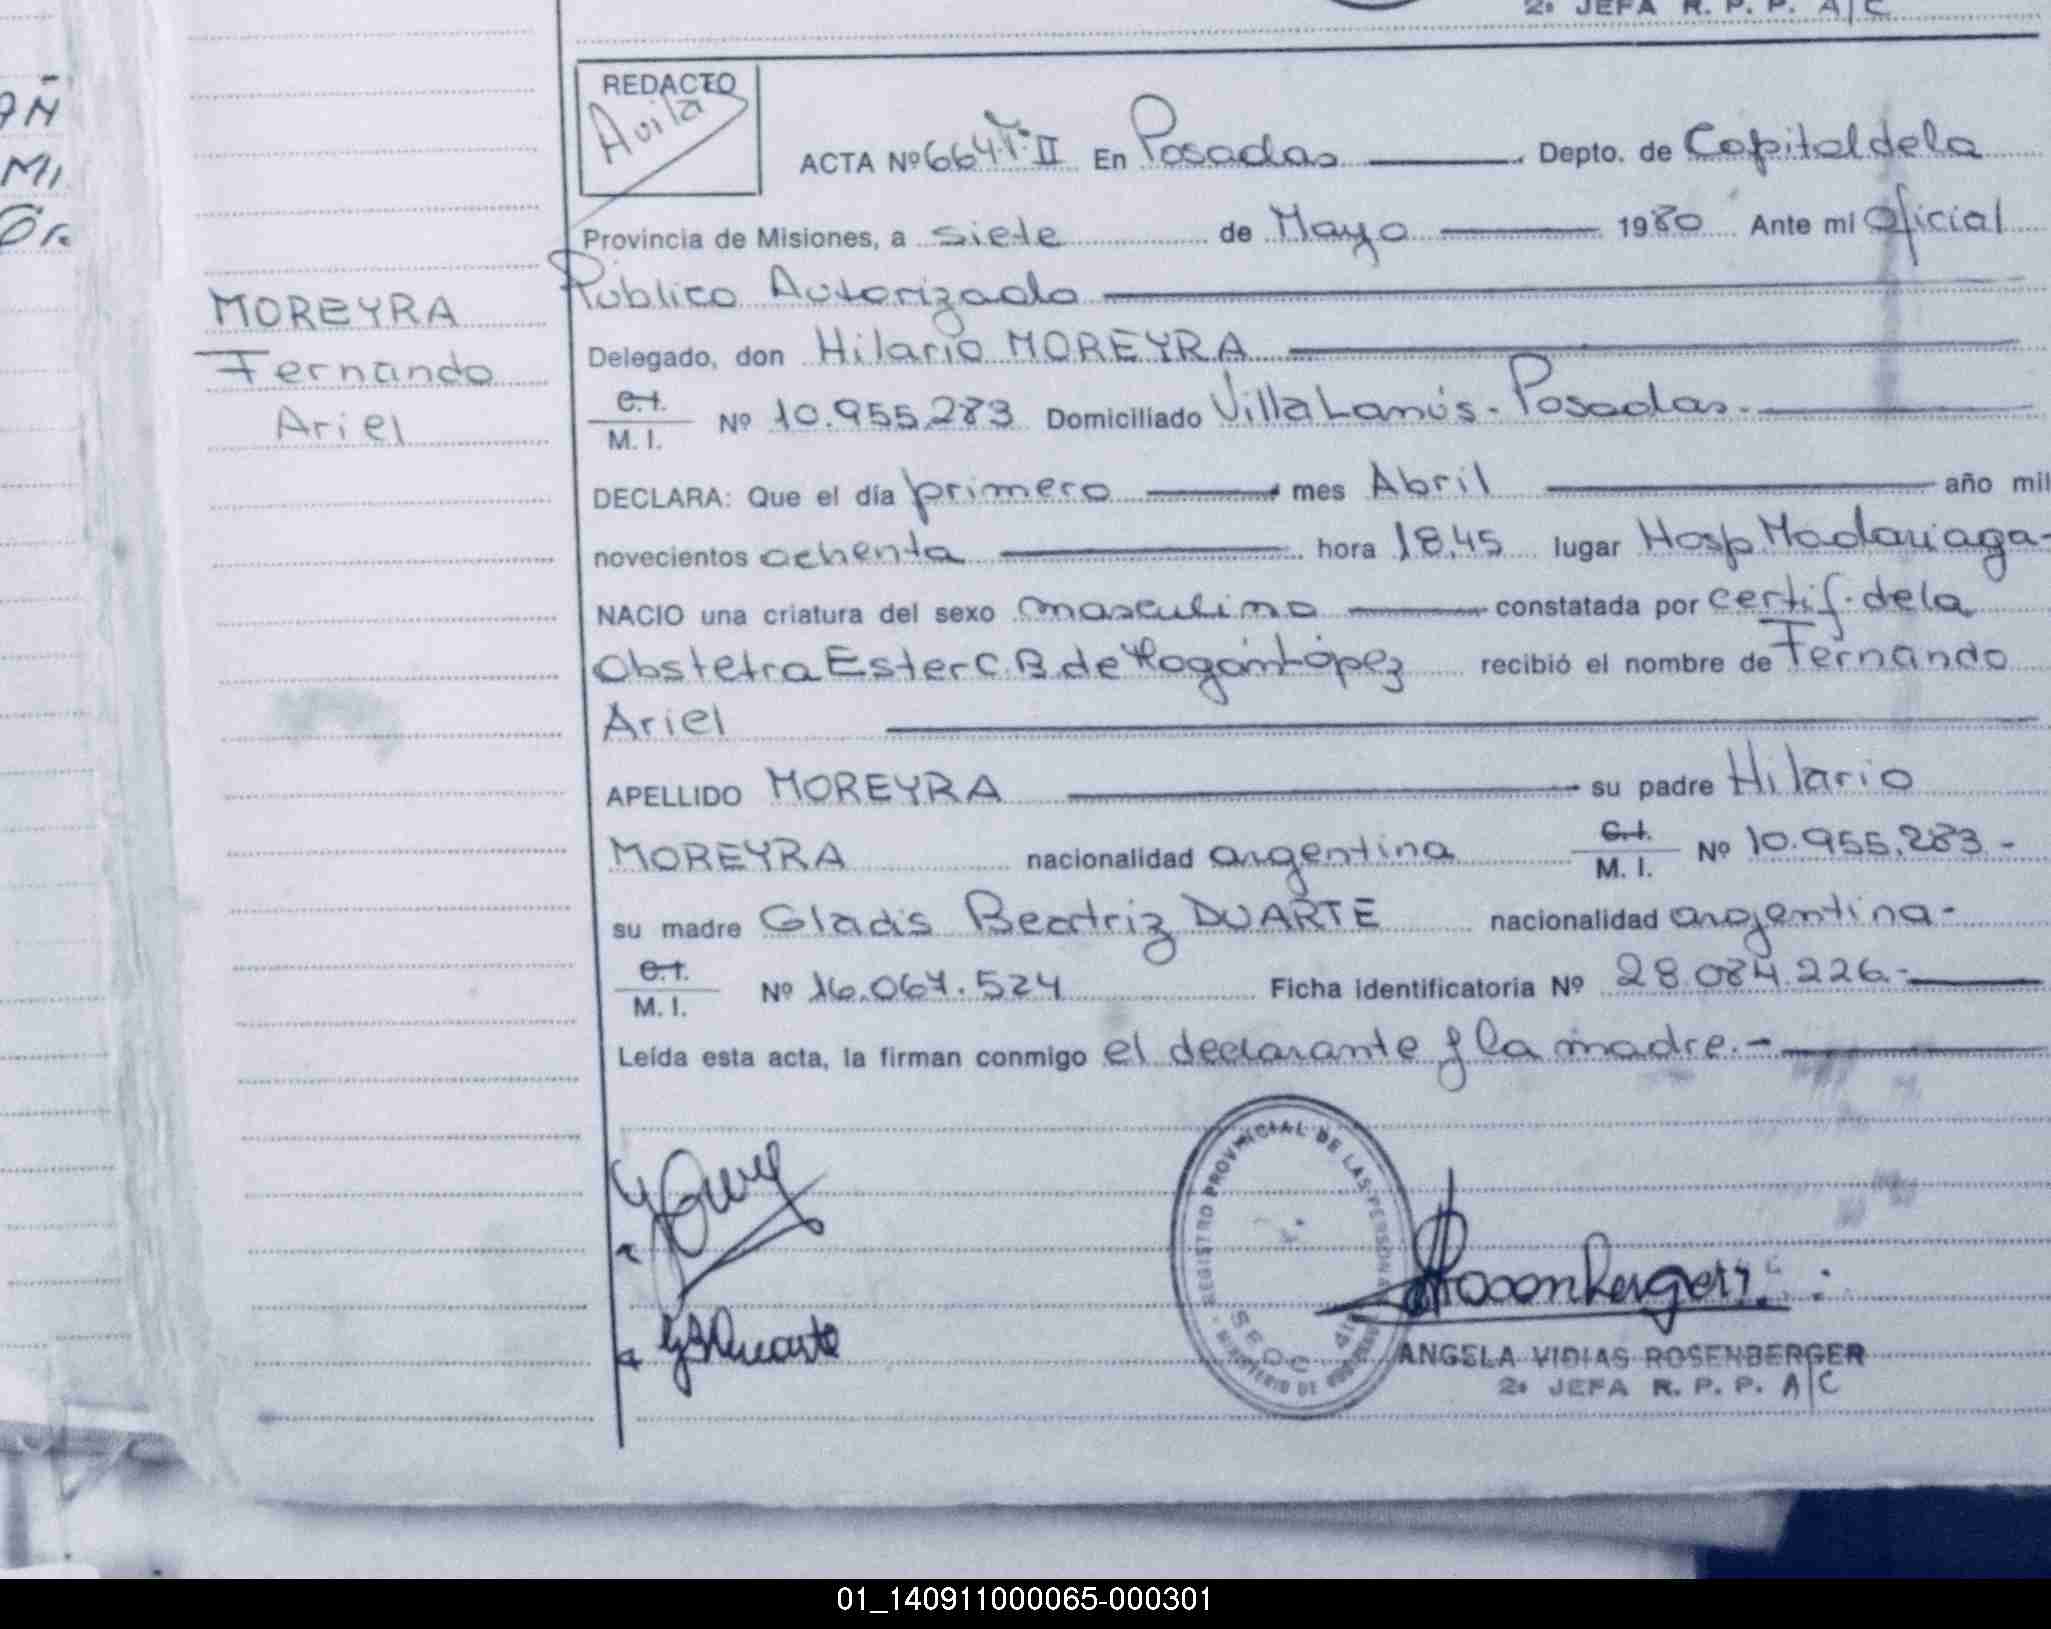 2º JEFA R. P. P. A/C
REDACTO
Avila
ACTA Nº 664 Tº II En Posadas Depto. de Capital de la
Provincia de Misiones, a siete de Mayo 1980 Ante mí Oficial
Público Autorizado
MOREYRA
Fernando
Ariel
Delegado, don Hilario MOREYRA
C.I.
M. I. Nº 10.955.283 Domiciliado Villa Lanús - Posadas.
DECLARA: Que el día primero mes Abril año mil
novecientos ochenta hora 18,45 lugar Hosp Madariaga-
NACIO una criatura del sexo masculino constatada por certif. de la
Obstetra Ester C. B. de López recibió el nombre de Fernando
Ariel
APELLIDO MOREYRA su padre Hilario
MOREYRA nacionalidad argentina C.I. M. I. Nº 10.955.283 -
su madre Gladis Beatriz DUARTE nacionalidad argentina -
C.I.
M. I. Nº 16.067.524 Ficha identificatoria Nº 28.084.226.-
Leída esta acta, la firman conmigo el declarante y la madre.-
REGISTRO PROVINCIAL DE LAS PERSONAS
MINISTERIO DE GOBIERNO
GBDuarte
Rosenberger
ANGELA VIDIAS ROSENBERGER
2º JEFA R. P. P. A/C
01_140911000065-000301